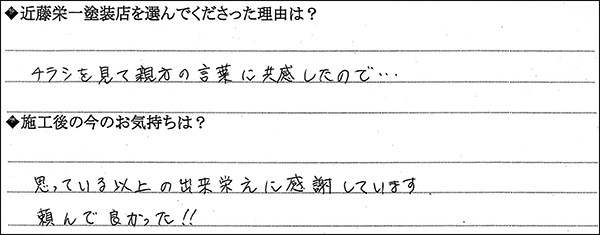 ◆近藤栄一塗装店を選んでくださった理由は？
チラシを見て親方の言葉に共感したので…
◆施工後の今のお気持ちは？
思っている以上の出来栄えに感謝しています
頼んで良かった!!